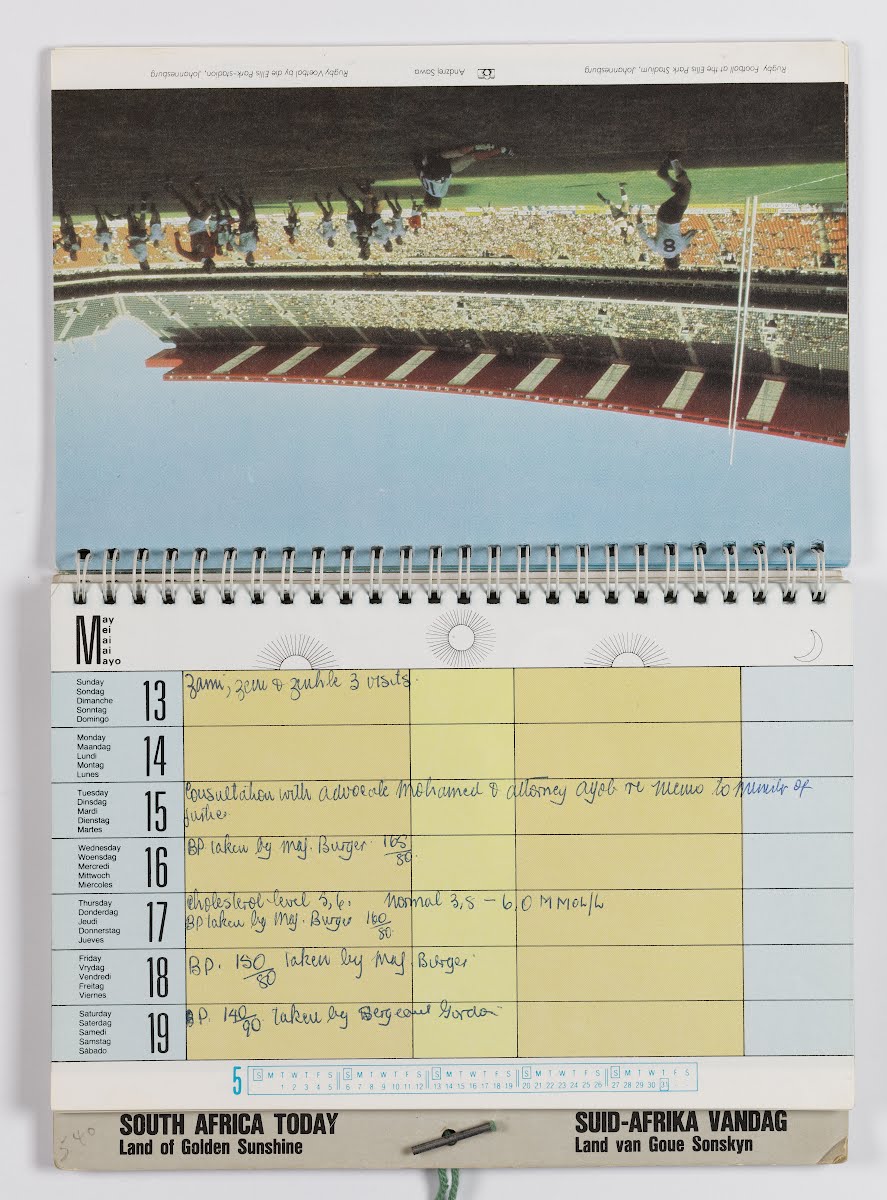 Rugby Football at the Ellis Park Stadium, Johannesburg
Andrzej Sawa
Rugby Voetbal by die Ellis Park-stadion, Johannesburg
May
ei
ai
ai
ayo
Sunday
Sondag
Dimanche
Sonntag
Domingo
13
Zami, Zeni & Zenhle 3 visits.
Monday
Maandag
Lundi
Montag
Lunes
14
Tuesday
Dinsdag
Mardi
Dienstag
Martes
15
Consultation with advocate Mohamed & attorney Ayob re memo to Minister of
Justice
Wednesday
Woensdag
Mercredi
Mittwoch
Miércoles
16
BP taken by Maj. Burger 165/80
Thursday
Donderdag
Jeudi
Donnerstag
Jueves
17
Cholesterol level 5,6. Normal 3,8 – 6,0 MMOL/L
BP taken by Maj. Burger 160/80
Friday
Vrydag
Vendredi
Freitag
Viernes
18
BP. 150/80 taken by Maj. Burger
Saturday
Saterdag
Samedi
Samstag
Sábado
19
BP. 140/90 taken by Sergeant Gordon
5
S M T W T F S S M T W T F S S M T W T F S S M T W T F S S M T W T F S
1 2 3 4 5 6 7 8 9 10 11 12 13 14 15 16 17 18 19 20 21 22 23 24 25 26 27 28 29 30 31
SOUTH AFRICA TODAY
Land of Golden Sunshine
SUID-AFRIKA VANDAG
Land van Goue Sonskyn
540
8